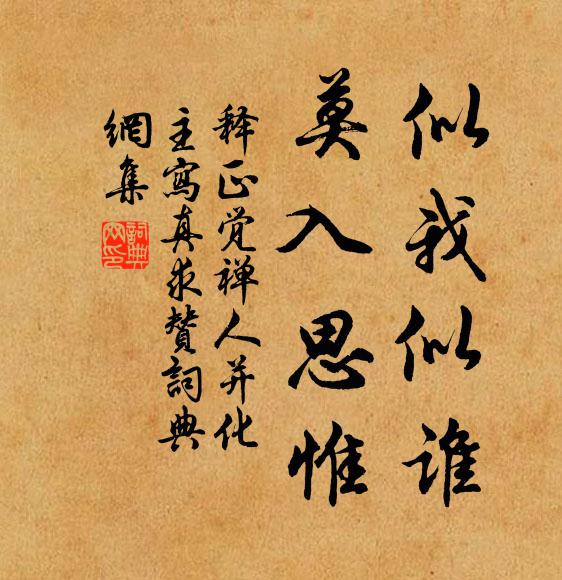 似我似谁
莫入思惟
释正觉禅人并化
主寫真求赞詞典
網集
詞典
网印